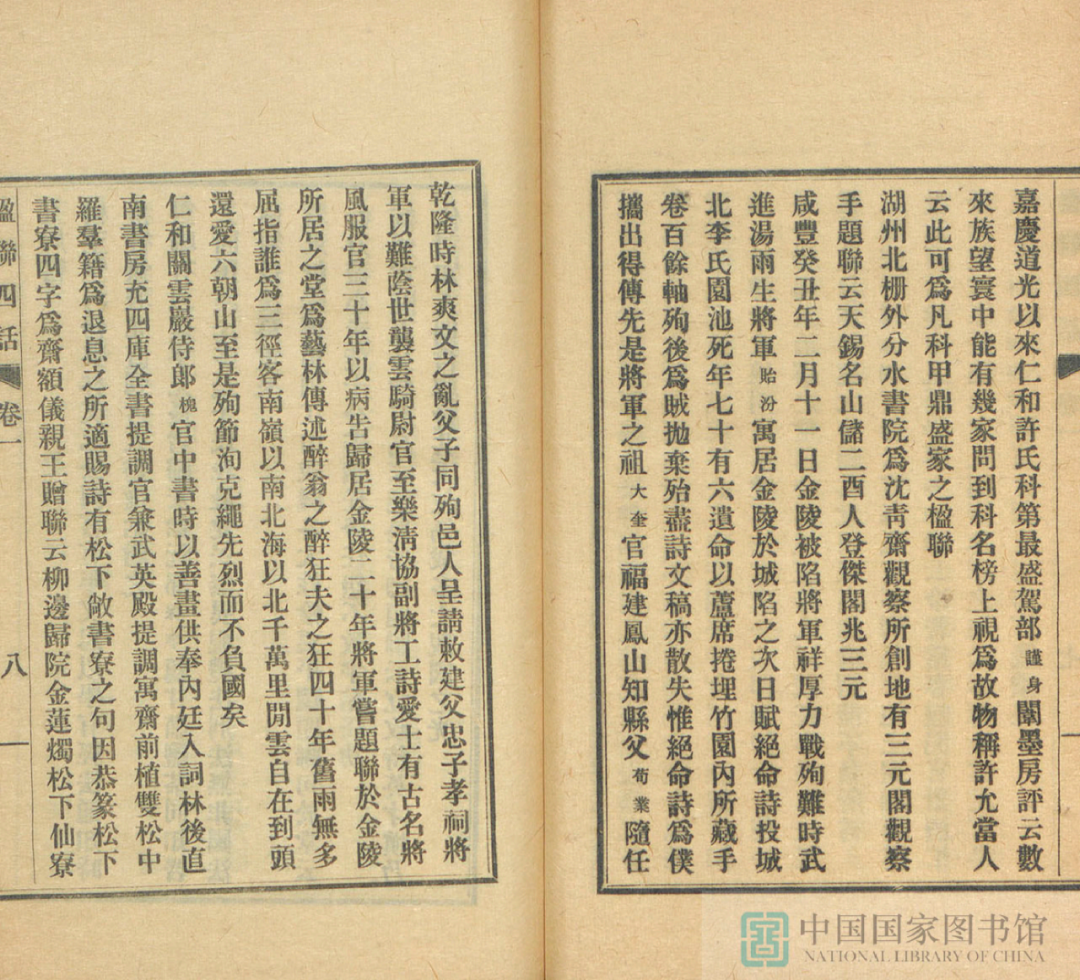 嘉慶道光以來仁和許氏科第最盛駕部謹身闈墨房評云數
來族望寰中能有幾家問到科名榜上視爲故物稱許允當人
云此可爲凡科甲鼎盛家之楹聯
湖州北栅外分水書院爲沈靑齋觀察所創地有三元閣觀察
手題聯云天錫名山儲二酉人登傑閣兆三元
咸豐癸丑年二月十一日金陵被陷將軍祥厚力戰殉難時武
進湯雨生將軍貽汾寓居金陵於城陷之次日賦絕命詩投城
北李氏園池死年七十有六遺命以蘆席捲埋竹園內所藏手
卷百餘軸殉後爲賊拋棄殆盡詩文稿亦散失惟絕命詩爲僕
攜出得傳先是將軍之祖大奎官福建鳳山知縣父荀業隨任
乾隆時林爽文之亂父子同殉邑人呈請敕建父忠子孝祠將
軍以難蔭世襲雲騎尉官至樂淸協副將工詩愛士有古名將
風服官三十年以病告歸居金陵二十年將軍嘗題聯於金陵
所居之堂爲藝林傳述醉翁之醉狂夫之狂四十年舊雨無多
屈指誰爲三徑客南嶺以南北海以北千萬里閒雲自在到頭
還愛六朝山至是殉節洵克繩先烈而不負國矣
仁和關雲巖侍郎槐官中書時以善畫供奉內廷入詞林後直
南書房充四庫全書提調官兼武英殿提調寓齋前植雙松中
羅羣籍爲退息之所適賜詩有松下敞書寮之句因恭篆松下
書寮四字爲齋額儀親王贈聯云柳邊歸院金蓮燭松下仙寮
楹聯四話 卷一 八
中国国家图书馆
NATIONAL LIBRARY OF CHINA